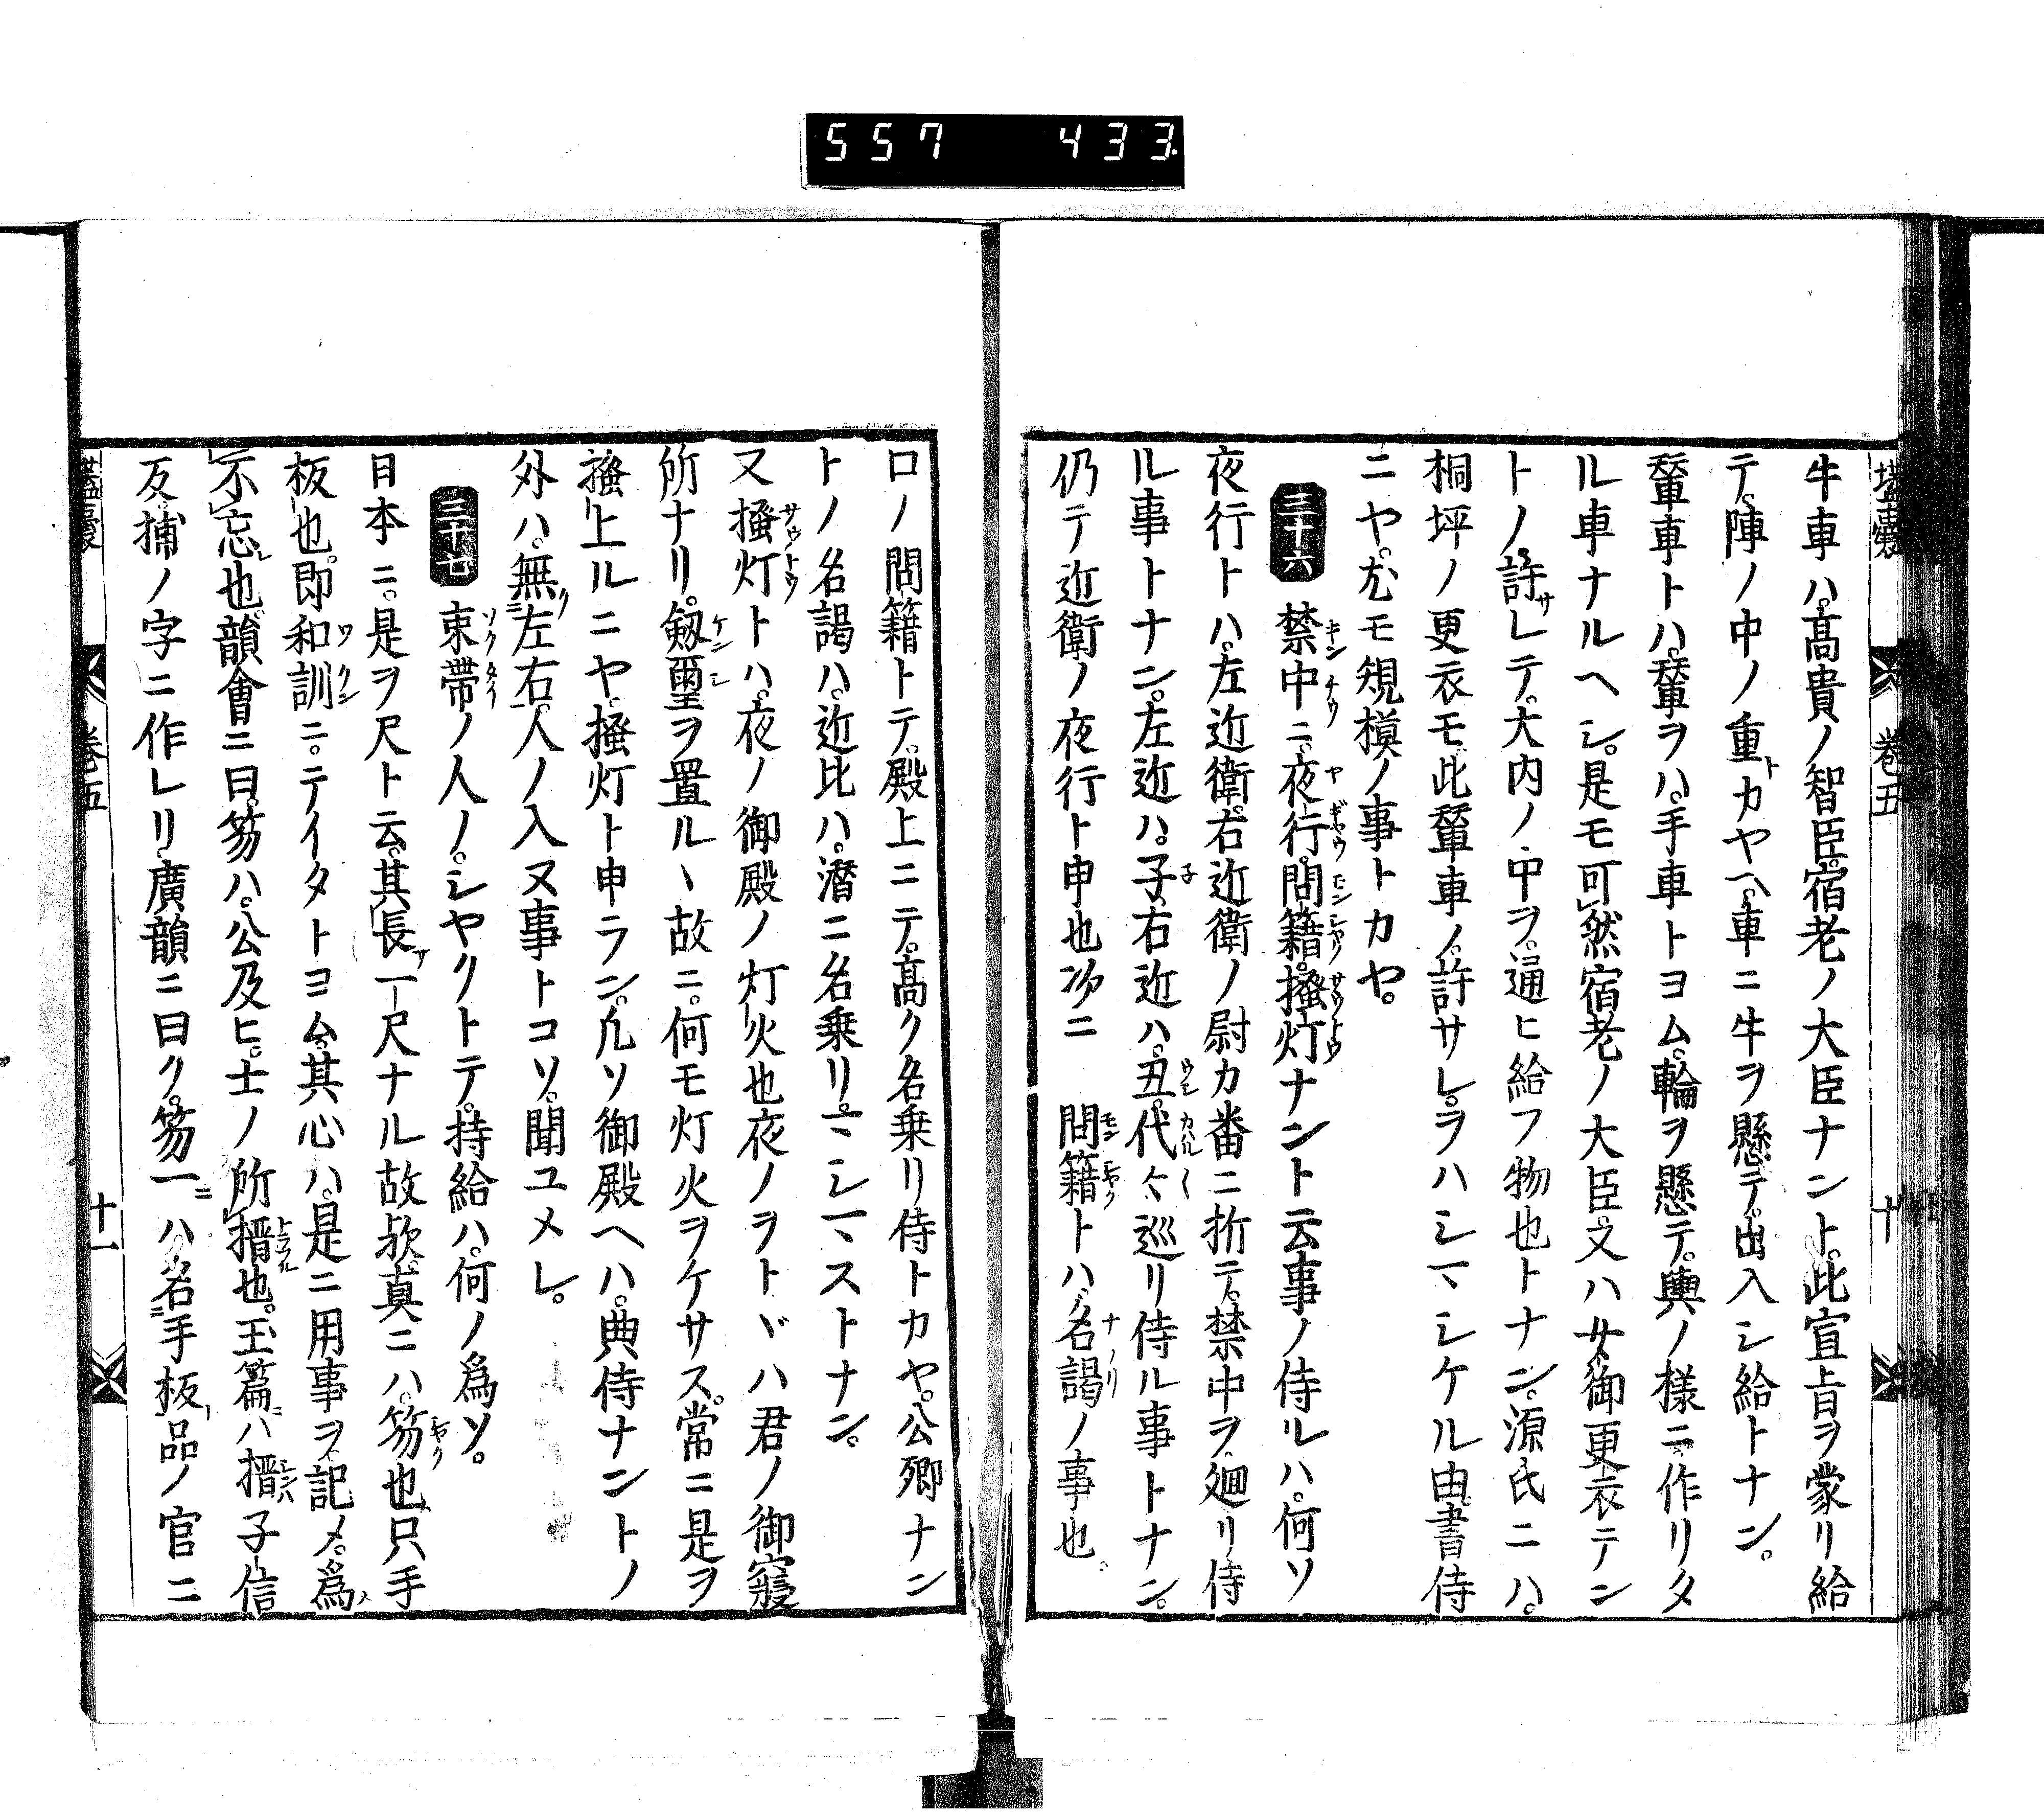 557 433.
壒囊 巻五 十
牛車ハ。髙貴ノ智臣。宿老ノ大臣ナント。此宣旨ヲ蒙リ給
テ。陣ノ中ノ重カヤヘ。車ニ牛ヲ懸テ。出入シ給トナン。
輦車トハ。輦ヲハ。手車トヨム。輪ヲ懸テ。輿ノ様ニ作リタ
ル車ナルヘシ。是モ可然宿老ノ大臣。又ハ女御更衣テン
トノ。許サレテ。大内ノ中ヲ。通ヒ給フ物也トナン。源氏ニハ。
桐坪ノ更衣モ。此輦車ノ。許サレ。ヲハシマシケル由。書侍
ニヤ。尤モ規模ノ事トカヤ。
三十六 禁中ニ。夜行。問籍。搔灯ナント云事ノ侍ルハ。何ソ
夜行トハ。左近衛。右近衛ノ尉カ番ニ折テ。禁中ヲ。廻リ侍
ル事トナン。左近ハ。子。右近ハ。丑。代々巡リ侍ル事トナン。
仍テ近衛ノ夜行ト申也次ニ 問籍トハ。名謁ノ事也。
口ノ問籍トテ。殿上ニテ。髙ク名乗リ侍トカヤ。公卿ナン
トノ名謁ハ。近比ハ。潜ニ名乗リマシマストナン。
又搔灯トハ。夜ノ御殿ノ灯火也夜ノヲトヾハ君ノ御寝
所ナリ。剱璽ヲ置ルヽ故ニ。何モ灯火ヲケサス。常ニ是ヲ
搔上ルニヤ。搔灯ト申ラン。凡ソ御殿ヘハ。典侍ナントノ
外ハ。無左右。人ノ入ヌ事トコソ。聞ユメレ。
三十七 束帶ノ人ノ。シヤクトテ。持給ハ。何ノ爲ソ。
日本ニ。是ヲ尺ト云。其長一尺ナル故歟。真ニハ。笏也只手
板也。即和訓ニ。テイタトヨム。其心ハ。是ニ用事ヲ記メ。爲
不忘也。韻會ニ曰。笏ハ。公及ヒ。士ノ所搢也。玉篇ハ搢子信
反。捕ノ字ニ作レリ。廣韻ニ曰ク。笏一ハ名手板品ノ官ニ
壒囊 巻五 十一